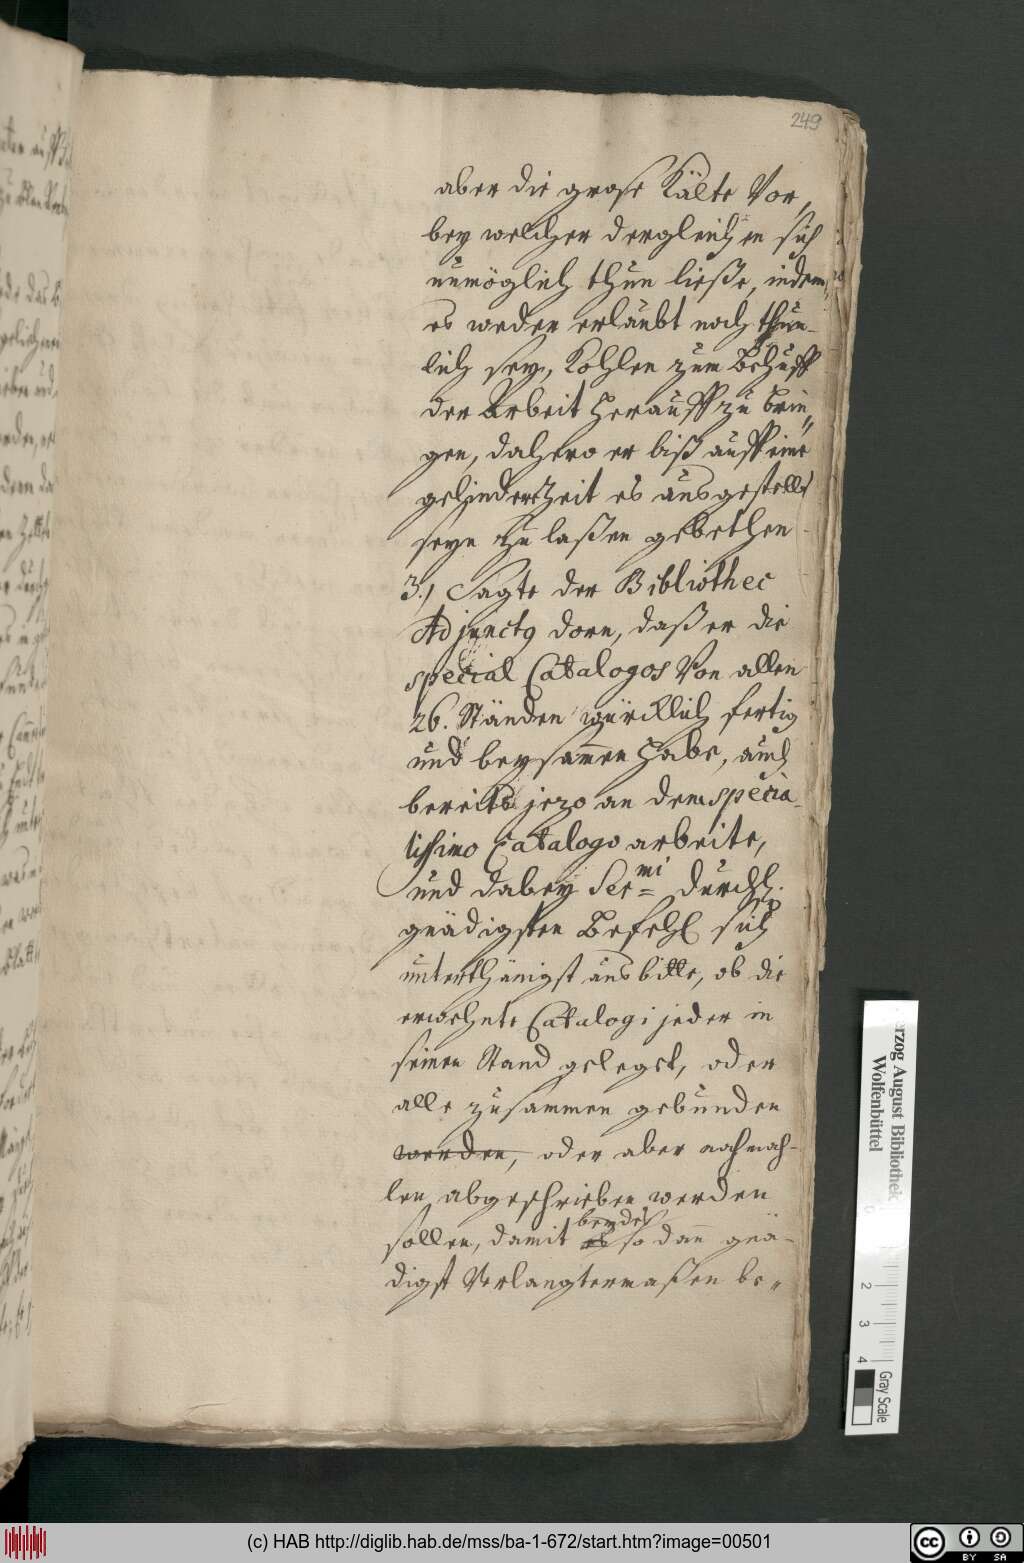 249
aber die große Kälte vor,
bey welcher dergleichen sich
unmöglich thun ließe, indem
es weder erlaubt noch thun-
lich sey, Kohlen zum Behuff
der Arbeit herauff zu brin„
gen, dahero er biß auff eine
gelindere Zeit es ausgestellt
seyn zu laßen gebethen
3.) Sagte der Bibliothec
Adjunctq dorn, daß er die
special Catalogos von allen
26. Ständen würcklich fertig
und beysam̄en habe, auch
bereits jezo an dem specia-
lissimo Catalogo arbeite,
und dabey Ser=mi Durchl.
gnädigsten Befehl sich
unterthänigst ausbitte, ob die
erwehnte Catalogi jeder in
seinen Stand gelegt, oder
alle zusammen gebunden
werden, oder aber nachmah-
len abgeschrieben werden
sollen, damit es beydes so dann gnä-
digst verlangtermaßen be„
Herzog August Bibliothek
Wolfenbüttel
0
2
3
4
Gray Scale
(c) HAB http://diglib.hab.de/mss/ba-1-672/start.htm?image=00501
cc BY SA